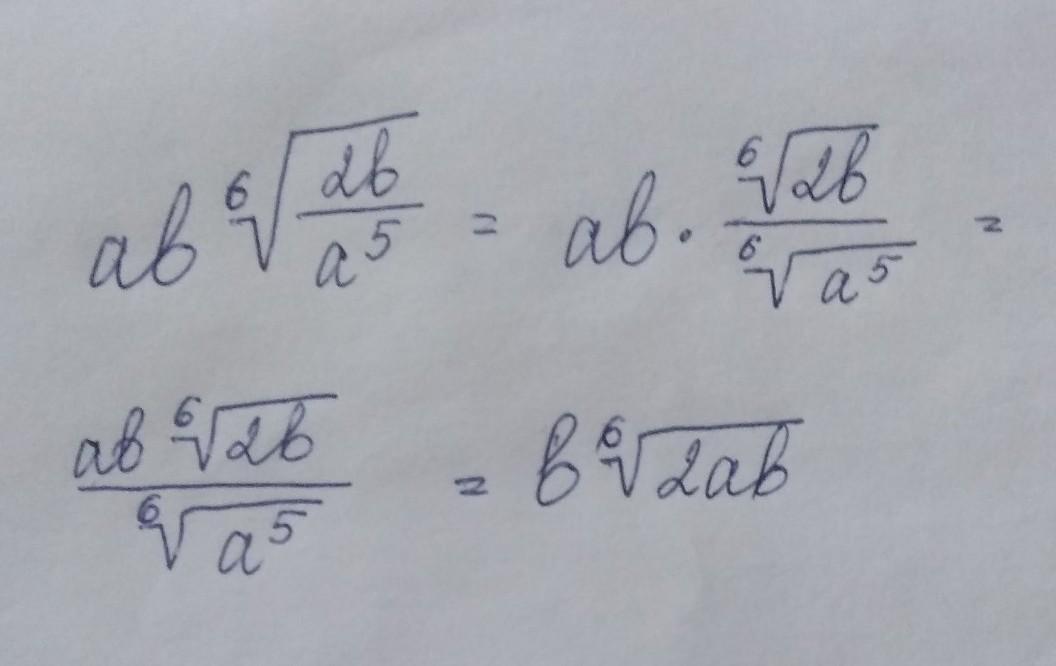 ab ⁶√(2b/a⁵) = ab · ⁶√(2b)/⁶√(a⁵) =
ab ⁶√(2b)/⁶√(a⁵) = b ⁶√(2ab)